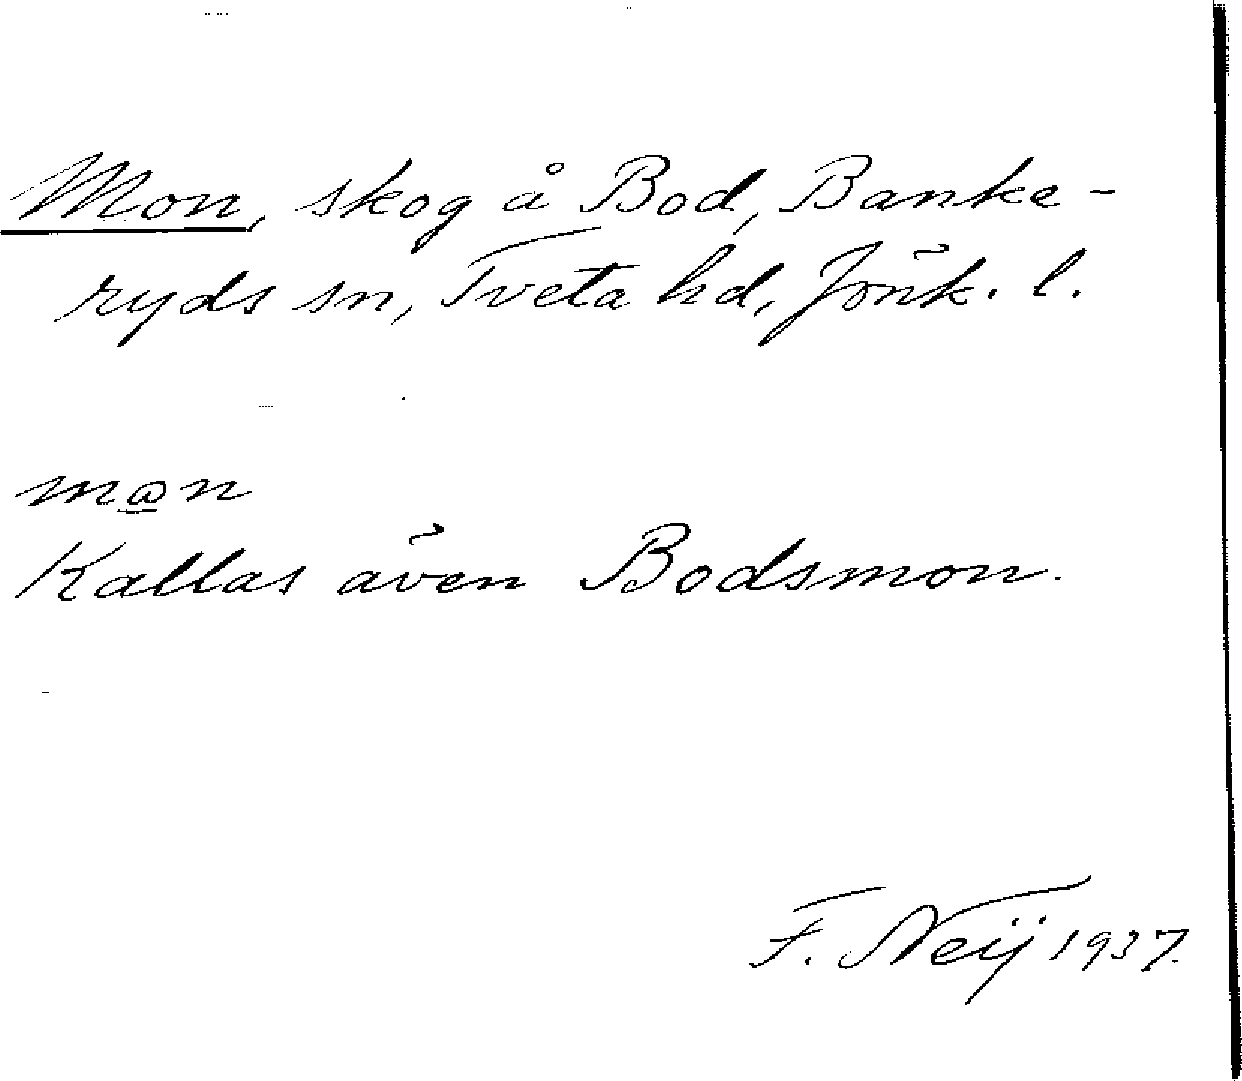 Mon, skog å Bod, Banke-
ryds sn, Tveta hd, Jönk. l.
m@n
Kallas även Bodsmon.
F. Neij 1937.